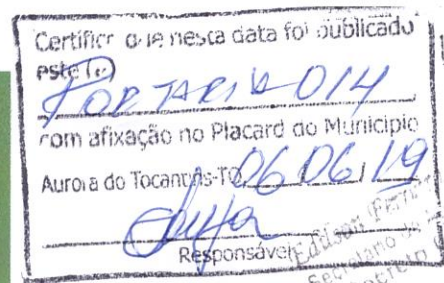 Certific que nesta data foi publicado
este(a)
PORTARIA 014
com afixação no Placard do Município
Aurora do Tocantins-TO 06/06/19
Responsável
Edilson
Secretário